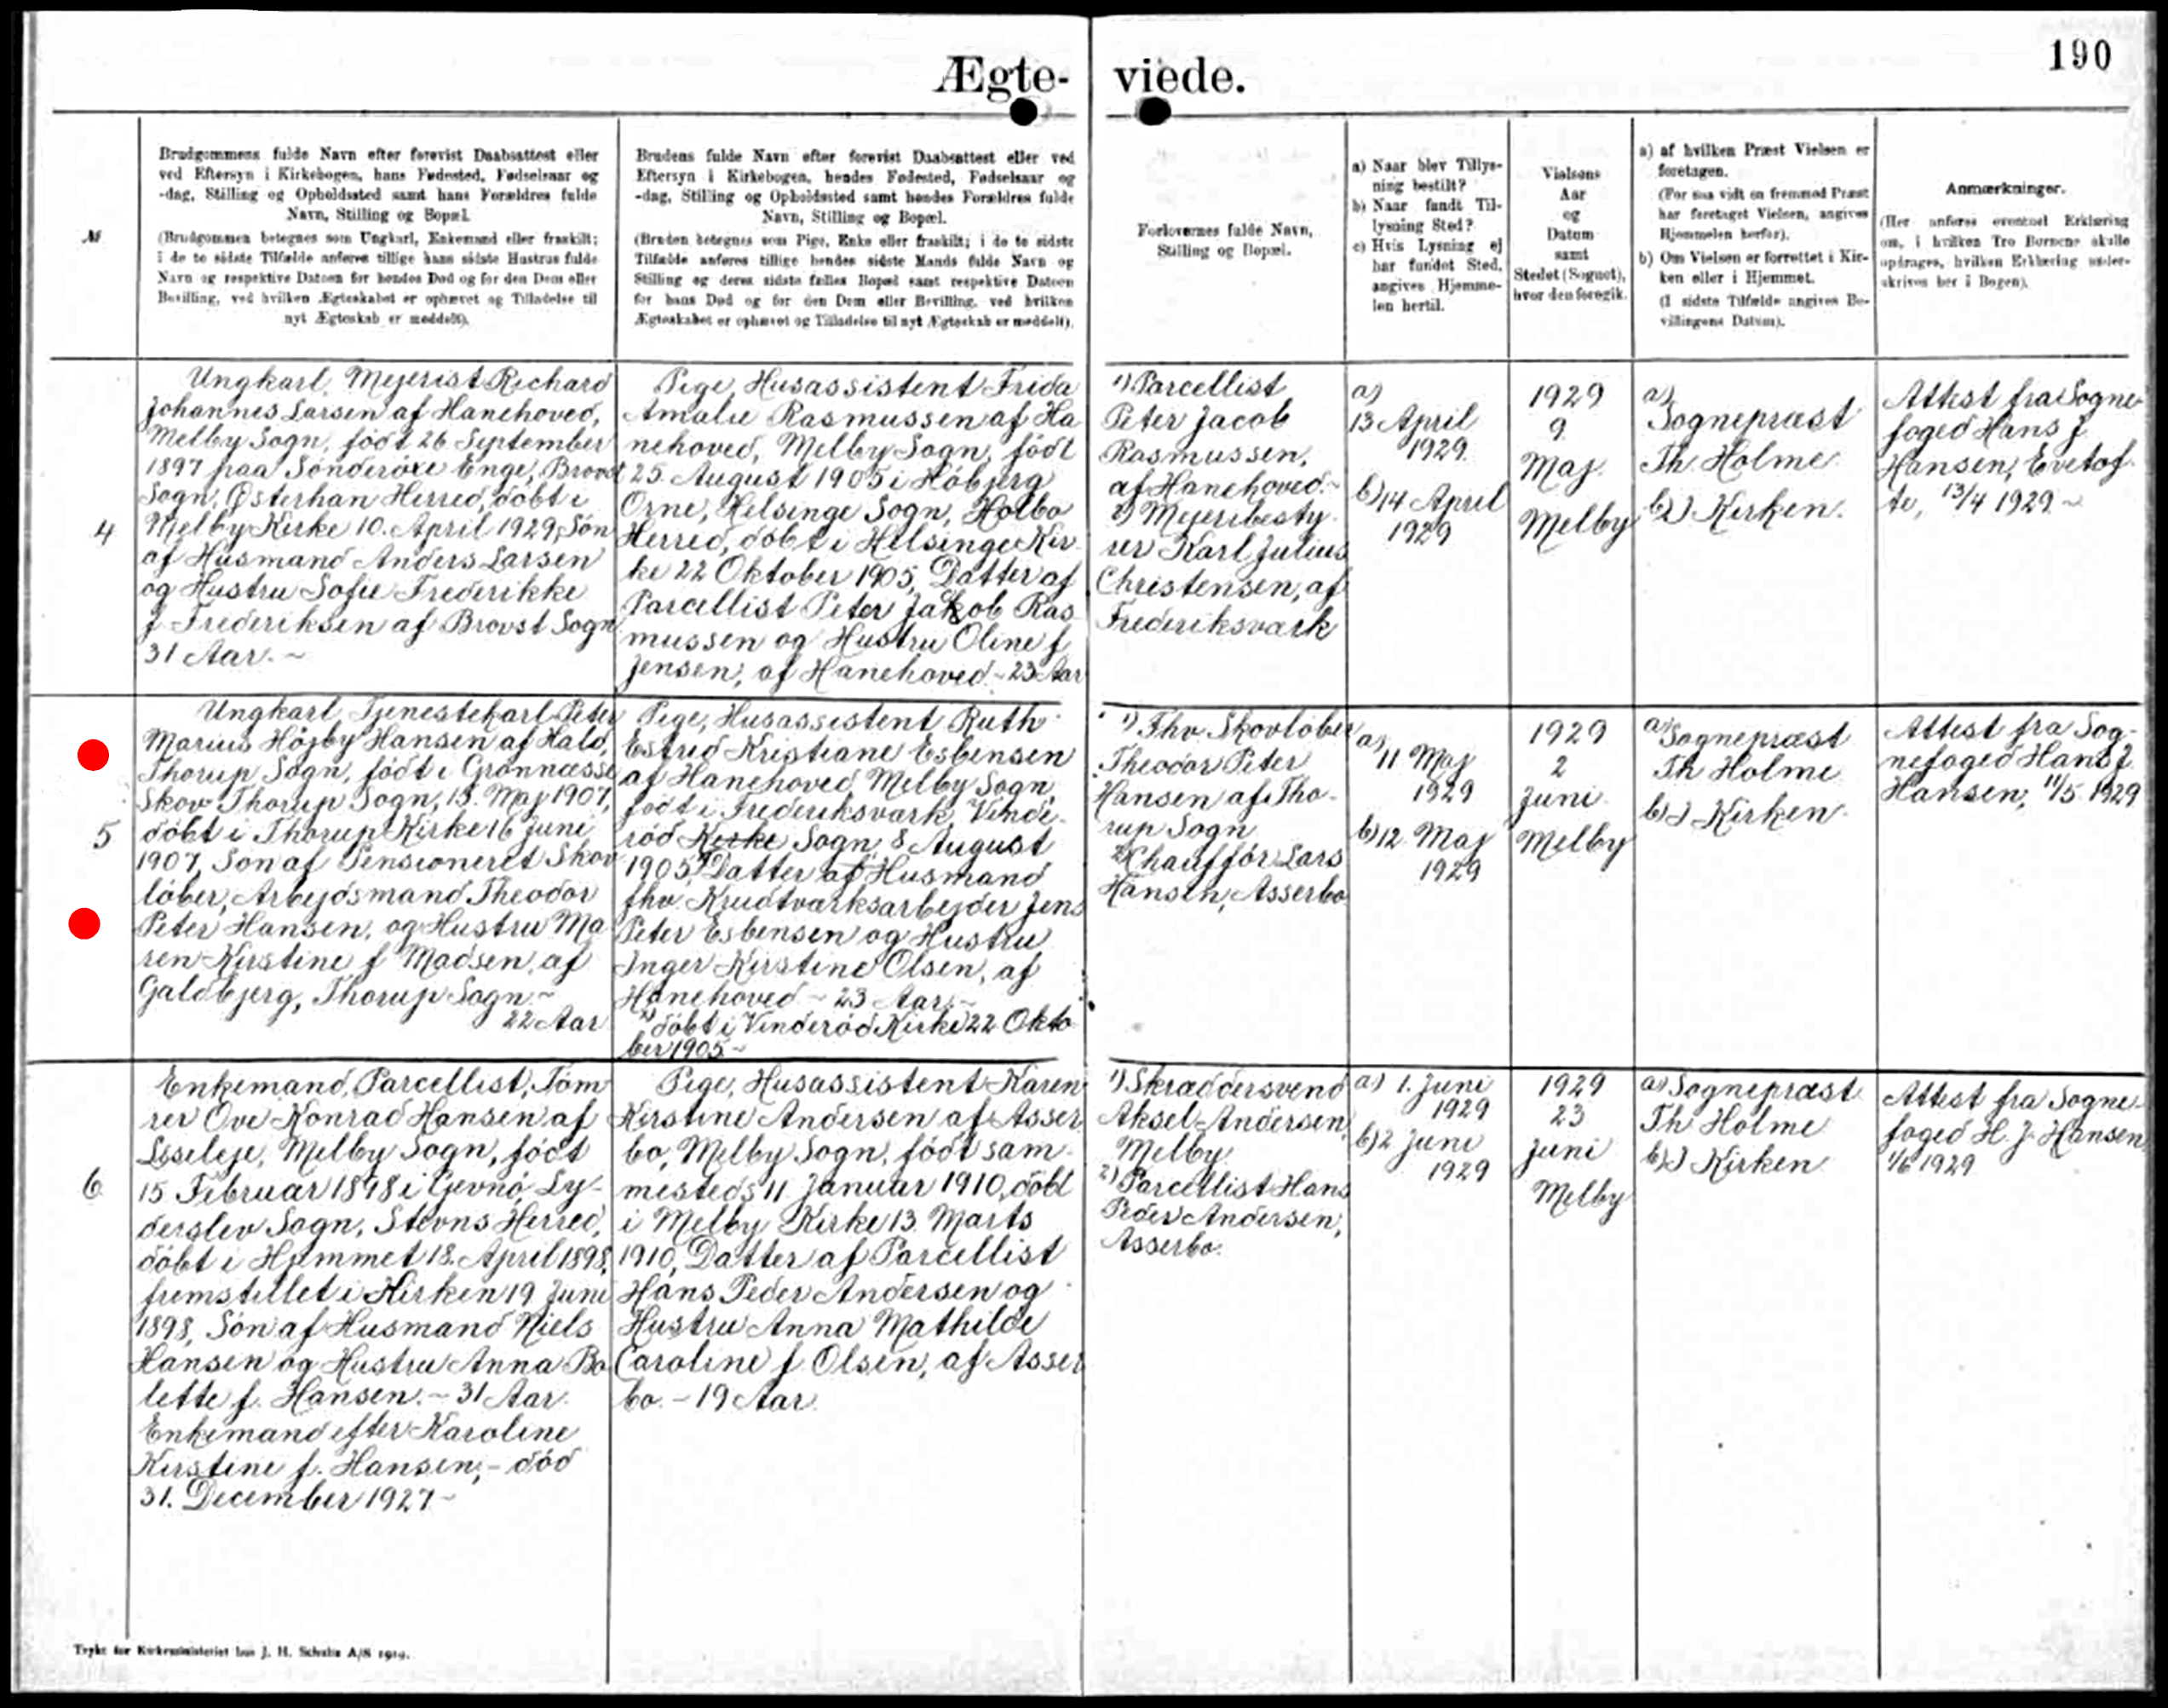 190
Ægte- viede.
№
Brudgommens fulde Navn efter forevist Daabsattest eller
ved Eftersyn i Kirkebogen, hans Fødested, Fødselsaar og
-dag, Stilling og Opholdssted samt hans Forældres fulde
Navn, Stilling og Bopæl.
(Brudgommen betegnes som Ungkarl, Enkemand eller fraskilt;
i de to sidste Tilfælde anføres tillige hans sidste Hustrus fulde
Navn og respektive Datoen for hendes Død og for den Dom eller
Bevilling, ved hvilken Ægteskabet er ophævet og Tilladelse til
nyt Ægteskab er meddelt).
Brudens fulde Navn efter forevist Daabsattest eller ved
Eftersyn i Kirkebogen, hendes Fødested, Fødselsaar og
-dag, Stilling og Opholdssted samt hendes Forældres fulde
Navn, Stilling og Bopæl.
(Bruden betegnes som Pige, Enke eller fraskilt; i de to sidste
Tilfælde anføres tillige hendes sidste Mands fulde Navn og
Stilling og deres sidste fælles Bopæl samt respektive Datoen
for hans Død og for den Dom eller Bevilling, ved hvilken
Ægteskabet er ophævet og Tilladelse til nyt Ægteskab er meddelt).
Forlovernes fulde Navn,
Stilling og Bopæl.
a) Naar blev Tillys-
ning bestilt?
b) Naar fandt Til-
lysning Sted?
c) Hvis Lysning ej
har fundet Sted,
angives Hjemme-
len hertil.
Vielsens
Aar
og
Datum
samt
Stedet (Sognet),
hvor den foregik.
a) af hvilken Præst Vielsen er
foretagen.
(For saa vidt en fremmed Præst
har foretaget Vielsen, angives
Hjemmelen herfor).
b) Om Vielsen er forrettet i Kir-
ken eller i Hjemmet.
(I sidste Tilfælde angives Be-
villingens Datum).
Anmærkninger.
(Her anføres eventuel Erklæring
om, i hvilken Tro Børnene skulle
opdrages, hvilken Erklæring under-
skrives her i Bogen).
4
Ungkarl, Mejerist Richard
Johannes Larsen af Hanehoved,
Melby Sogn, født 26 September
1897 paa Sønderøxe Enge, Brovst
Sogn, Østerhan Herred, døbt i
Melby Kirke 10. April 1929, Søn
af Husmand Anders Larsen
og Hustru Sofie Frederikke
f. Frederiksen af Brovst Sogn
31 Aar. ~
Pige, Husassistent Frida
Amalie Rasmussen af Ha
nehoved, Melby Sogn, født
25. August 1905 i Høbjerg
Orne, Helsinge Sogn, Holbo
Herred, døbt i Helsinge Kir
ke 22 Oktober 1905, Datter af
Parcellist Peter Jakob Ras
mussen og Hustru Oline f.
Jensen, af Hanehoved. - 23 Aar
1) Parcellist
Peter Jacob
Rasmussen,
af Hanehoved. ~
2) Mejeribesty
rer Karl Julius
Christensen, af
Frederiksværk
a)
13 April
1929
b) 14 April
1929
1929
9.
Maj.
Melby
a)
Sognepræst
Th. Holme
b) I Kirken.
Attest fra Sogne
foged Hans J.
Hansen, Evetof
te, 13/4 1929 ~
5
Ungkarl Tjenestekarl Peter
Marius Højby Hansen af Hald,
Thorup Sogn, født i Grønnæsse
Skov Thorup Sogn, 15. Maj 1907,
døbt i Thorup Kirke 16 Juni
1907, Søn af Pensioneret Skov
løber, Arbejdsmand Theodor
Peter Hansen, og Hustru Ma
ren Kirstine f. Madsen, af
Galdbjerg, Thorup Sogn. ~
22 Aar
Pige, Husassistent Ruth
Estrid Kristiane Esbensen
af Hanehoved, Melby Sogn,
født i Frederiksværk, Vinde-
rød Kirke Sogn, 8 August
1905, Datter af Husmand
fhv. Krudtværksarbejder Jens
Peter Esbensen og Hustru
Inger Kirstine Olsen, af
Hanehoved ~ 23 Aar. ~
døbt i Vinderød Kirke 22 Okto
ber 1905 ~
1) Fhv. Skovløber
Theodor Peter
Hansen af Tho-
rup Sogn
2) Chauffør Lars
Hansen, Asserbo
a)
11 Maj
1929
b) 12 Maj
1929
1929
2
Juni
Melby
a) Sognepræst
Th Holme
b) I Kirken.
Attest fra Sog-
nefoged Hans J.
Hansen, 11/5 1929
6
Enkemand, Parcellist, Tøm
rer Ove Konrad Hansen af
Liseleje, Melby Sogn, født
15 Februar 1898 i Gevnø, Ly-
derslev Sogn, Stevns Herred,
døbt i Hjemmet 18. April 1898,
fremstillet i Kirken 19 Juni
1898, Søn af Husmand Niels
Hansen og Hustru Anna Bo
lette f. Hansen. ~ 31 Aar.
Enkemand efter Karoline
Kirstine f. Hansen, - død
31. December 1927 ~
Pige, Husassistent Karen
Kirstine Andersen af Asser
bo, Melby Sogn, født sam-
mesteds 11 Januar 1910, døbt
i Melby Kirke 13. Marts
1910, Datter af Parcellist
Hans Peder Andersen og
Hustru Anna Mathilde
Caroline f. Olsen, af Asser
bo. - 19 Aar
1) Skræddersvend
Aksel Andersen
Melby
2) Parcellist Hans
Peder Andersen,
Asserbo.
a) 1. Juni
1929
b) 2 Juni
1929
1929
23
Juni
Melby
a) Sognepræst
Th Holme
b) I Kirken
Attest fra Sogne-
foged H. J. Hansen
1/6 1929
Trykt for Kirkeministeriet hos J. H. Schultz A/S 1919.